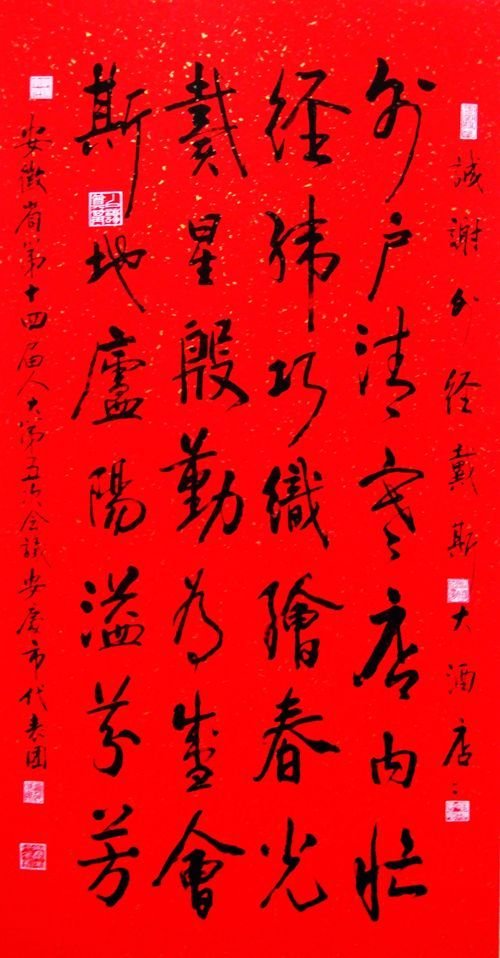 誠謝外经戴斯大酒店
外户清寒店内忙
經緯巧織繪春光
戴星殷勤为盛會
斯地廬陽溢芬芳
安徽省第十四届人大第五次会議安庆市代表团